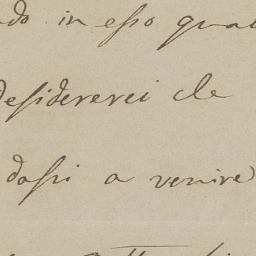 do in eſso qual
deſidererei che
daſsi a venire